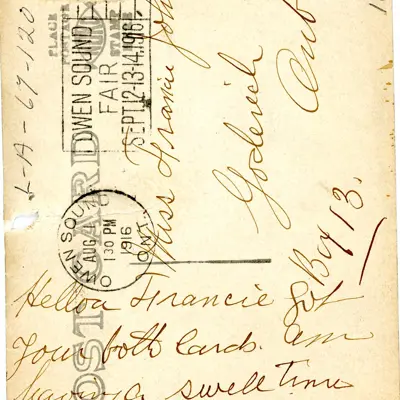 PLACE
POSTAGE
STAMP
OWEN SOUND
FAIR
SEPT.12-13-14,1916
POST CARD
OWEN SOUND
AUG
30 PM
1916
ONT.
Miss Francie Joh
Goderich
Ont
Box 13.
L-A-67-120
Helloa Francie got
your both Cards. am
having swell time